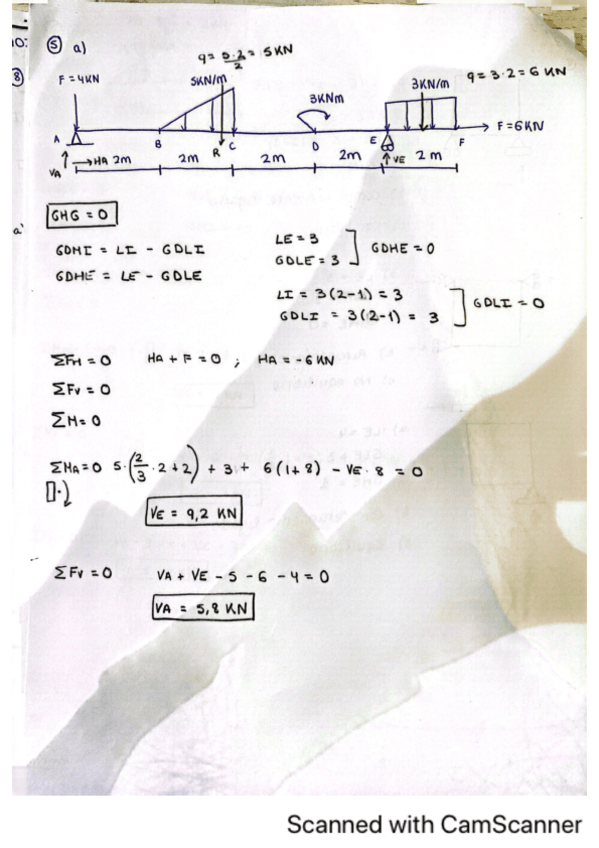 ⑤ a)
q = 5·2/2 = 5 KN
F = 4KN
5KN/m
3KNm
3KN/m
q = 3·2 = 6 KN
F = 6KN
A B R C D E F
VA HA 2m 2m 2m 2m VE 2m
GHG = 0
GDHI = LI - GDLI
GDHE = LE - GDLE
LE = 3
GDLE = 3
GDHE = 0
LI = 3(2-1) = 3
GDLI = 3(2-1) = 3
GDLI = 0
ΣFH = 0 HA + F = 0 ; HA = -6 KN
ΣFV = 0
ΣM = 0
ΣMA = 0 5·(2/3·2+2) + 3 + 6(1+8) - VE·8 = 0
VE = 9,2 KN
ΣFV = 0 VA + VE - 5 - 6 - 4 = 0
VA = 5,8 KN
Scanned with CamScanner